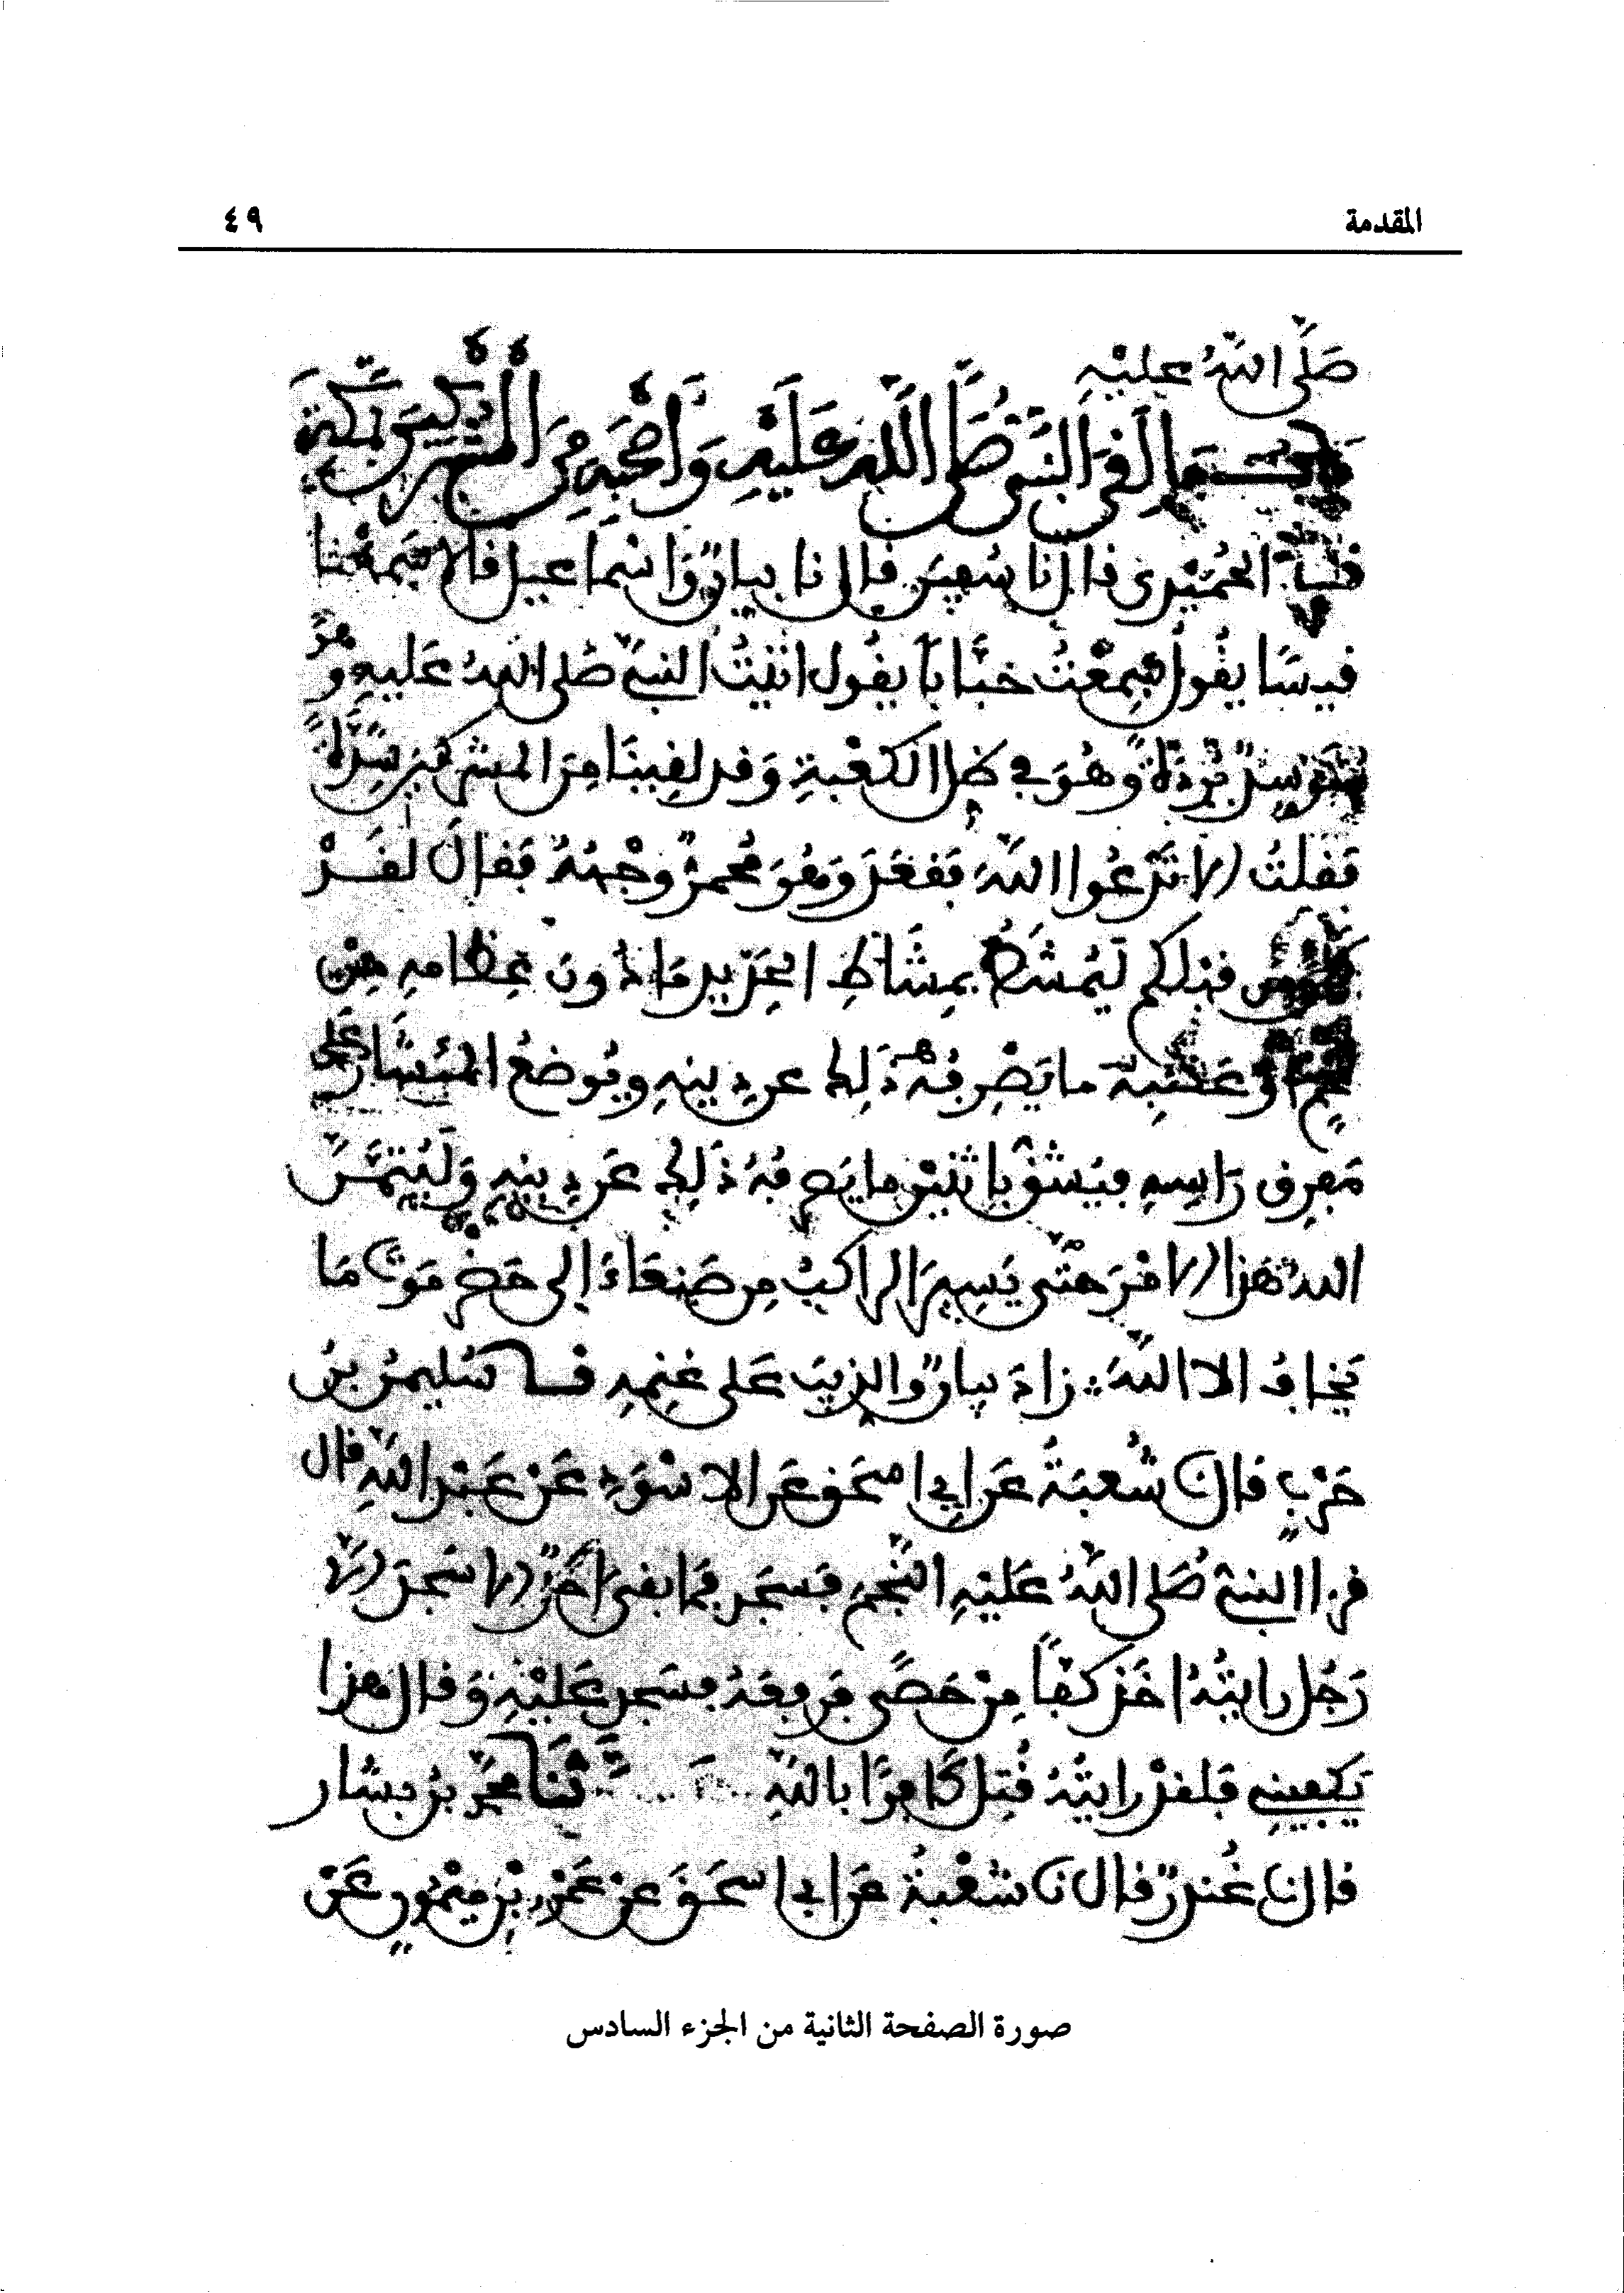 المقدمة
٤٩
صَلَّى اللهُ عَلَيْهِ
مالقي النبي صلى الله عليه وأصحبه من المشركين بمكة
الحميدي قال نا سفين قال نا بيان وإسماعيل قالا سمعنا
قيسا يقول سمعت خبابا يقول أتيت النبي صلى الله عليه وهو
بردة وهو في ظل الكعبة وقد لقينا من المشركين شدة
فقلت ألا تدعو الله فقعد وهو محمر وجهه فقال لقد
قبلكم ليمشط بمشاط الحديد ما دون عظامه من
لحم أو عصب ما يصرفه ذلك عن دينه ويوضع المئشار على
مفرق رأسه فيشق باثنين ما يصرفه ذلك عن دينه وليتمن
الله هذا الأمر حتى يسير الراكب من صنعاء إلى حضرموت ما
يخاف إلا الله زاد بيان والذيب على غنمه سليمن بن
حرب قال نا شعبة عن أبي إسحق عن الأسود عن عبد الله قال
قرأ النبي صلى الله عليه النجم فسجد فما بقي أحد إلا سجد إلا
رجل رأيته أخذ كفا من حصى فرفعه فسجد عليه وقال هذا
يكفيني فلقد رأيته قتل كافرا بالله ثنا محمد بن بشار
قال نا غندر قال نا شعبة عن أبي إسحق عن عمرو بن ميمون عن
صورة الصفحة الثانية من الجزء السادس